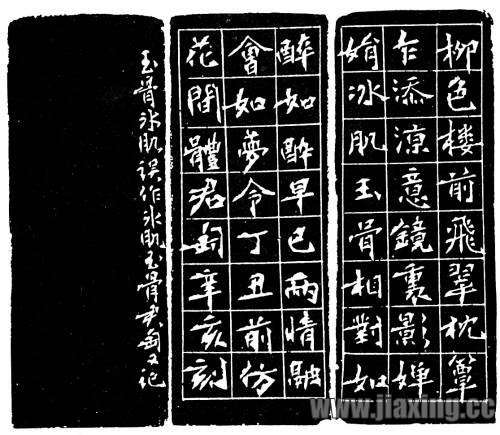 柳色楼前飛翠枕簟
乍添涼意鏡裏影嬋
娟冰肌玉骨相對如
醉如醉早已兩情融
會如夢令丁丑前仿
花間體君匋辛亥刻
玉骨冰肌误作冰肌玉骨君匋又记
www.jiaxing.cc